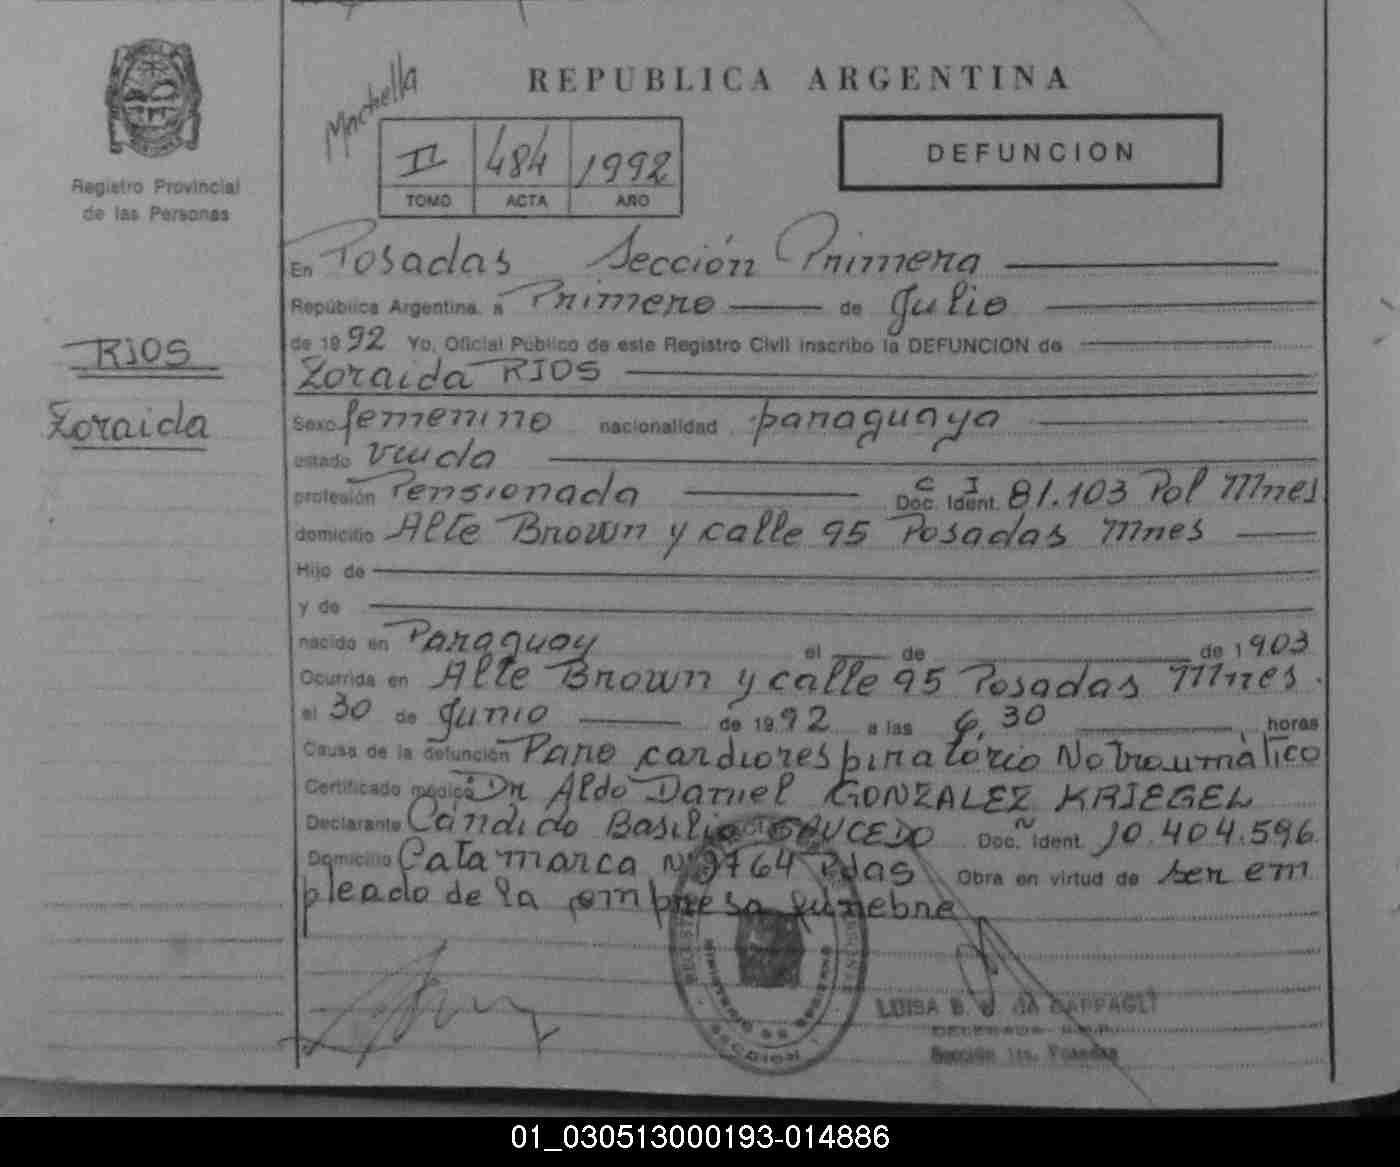 REPUBLICA ARGENTINA
Registro Provincial
de las Personas
II 484 1992
TOMO ACTA AÑO
DEFUNCION
RIOS
Zoraida
En Posadas Sección Primera
República Argentina, a Primero de Julio
de 1992 Yo, Oficial Público de este Registro Civil inscribo la DEFUNCION de
Zoraida RIOS
Sexo femenino nacionalidad paraguaya
estado viuda
profesión Pensionada C I Doc. Ident. 81.103 Pol Mnes
domicilio Alte Brown y calle 95 Posadas Mnes
Hijo de
y de
nacido en Paraguay el de de 1903
Ocurrida en Alte Brown y calle 95 Posadas Mnes.
el 30 de Junio de 1992 a las 6,30 horas
Causa de la defunción Paro cardiorespiratorio No traumático
Certificado médico Dr Aldo Daniel GONZALEZ KRIEGEL
Declarante Cándido Basilio SAUCEDO Doc. Ident. 10.404.596
Domicilio Catamarca Nº 2764 Pdas Obra en virtud de ser em
pleado de la empresa fúnebre
LUISA B. de
Sección 1ra. Posadas
01_030513000193-014886